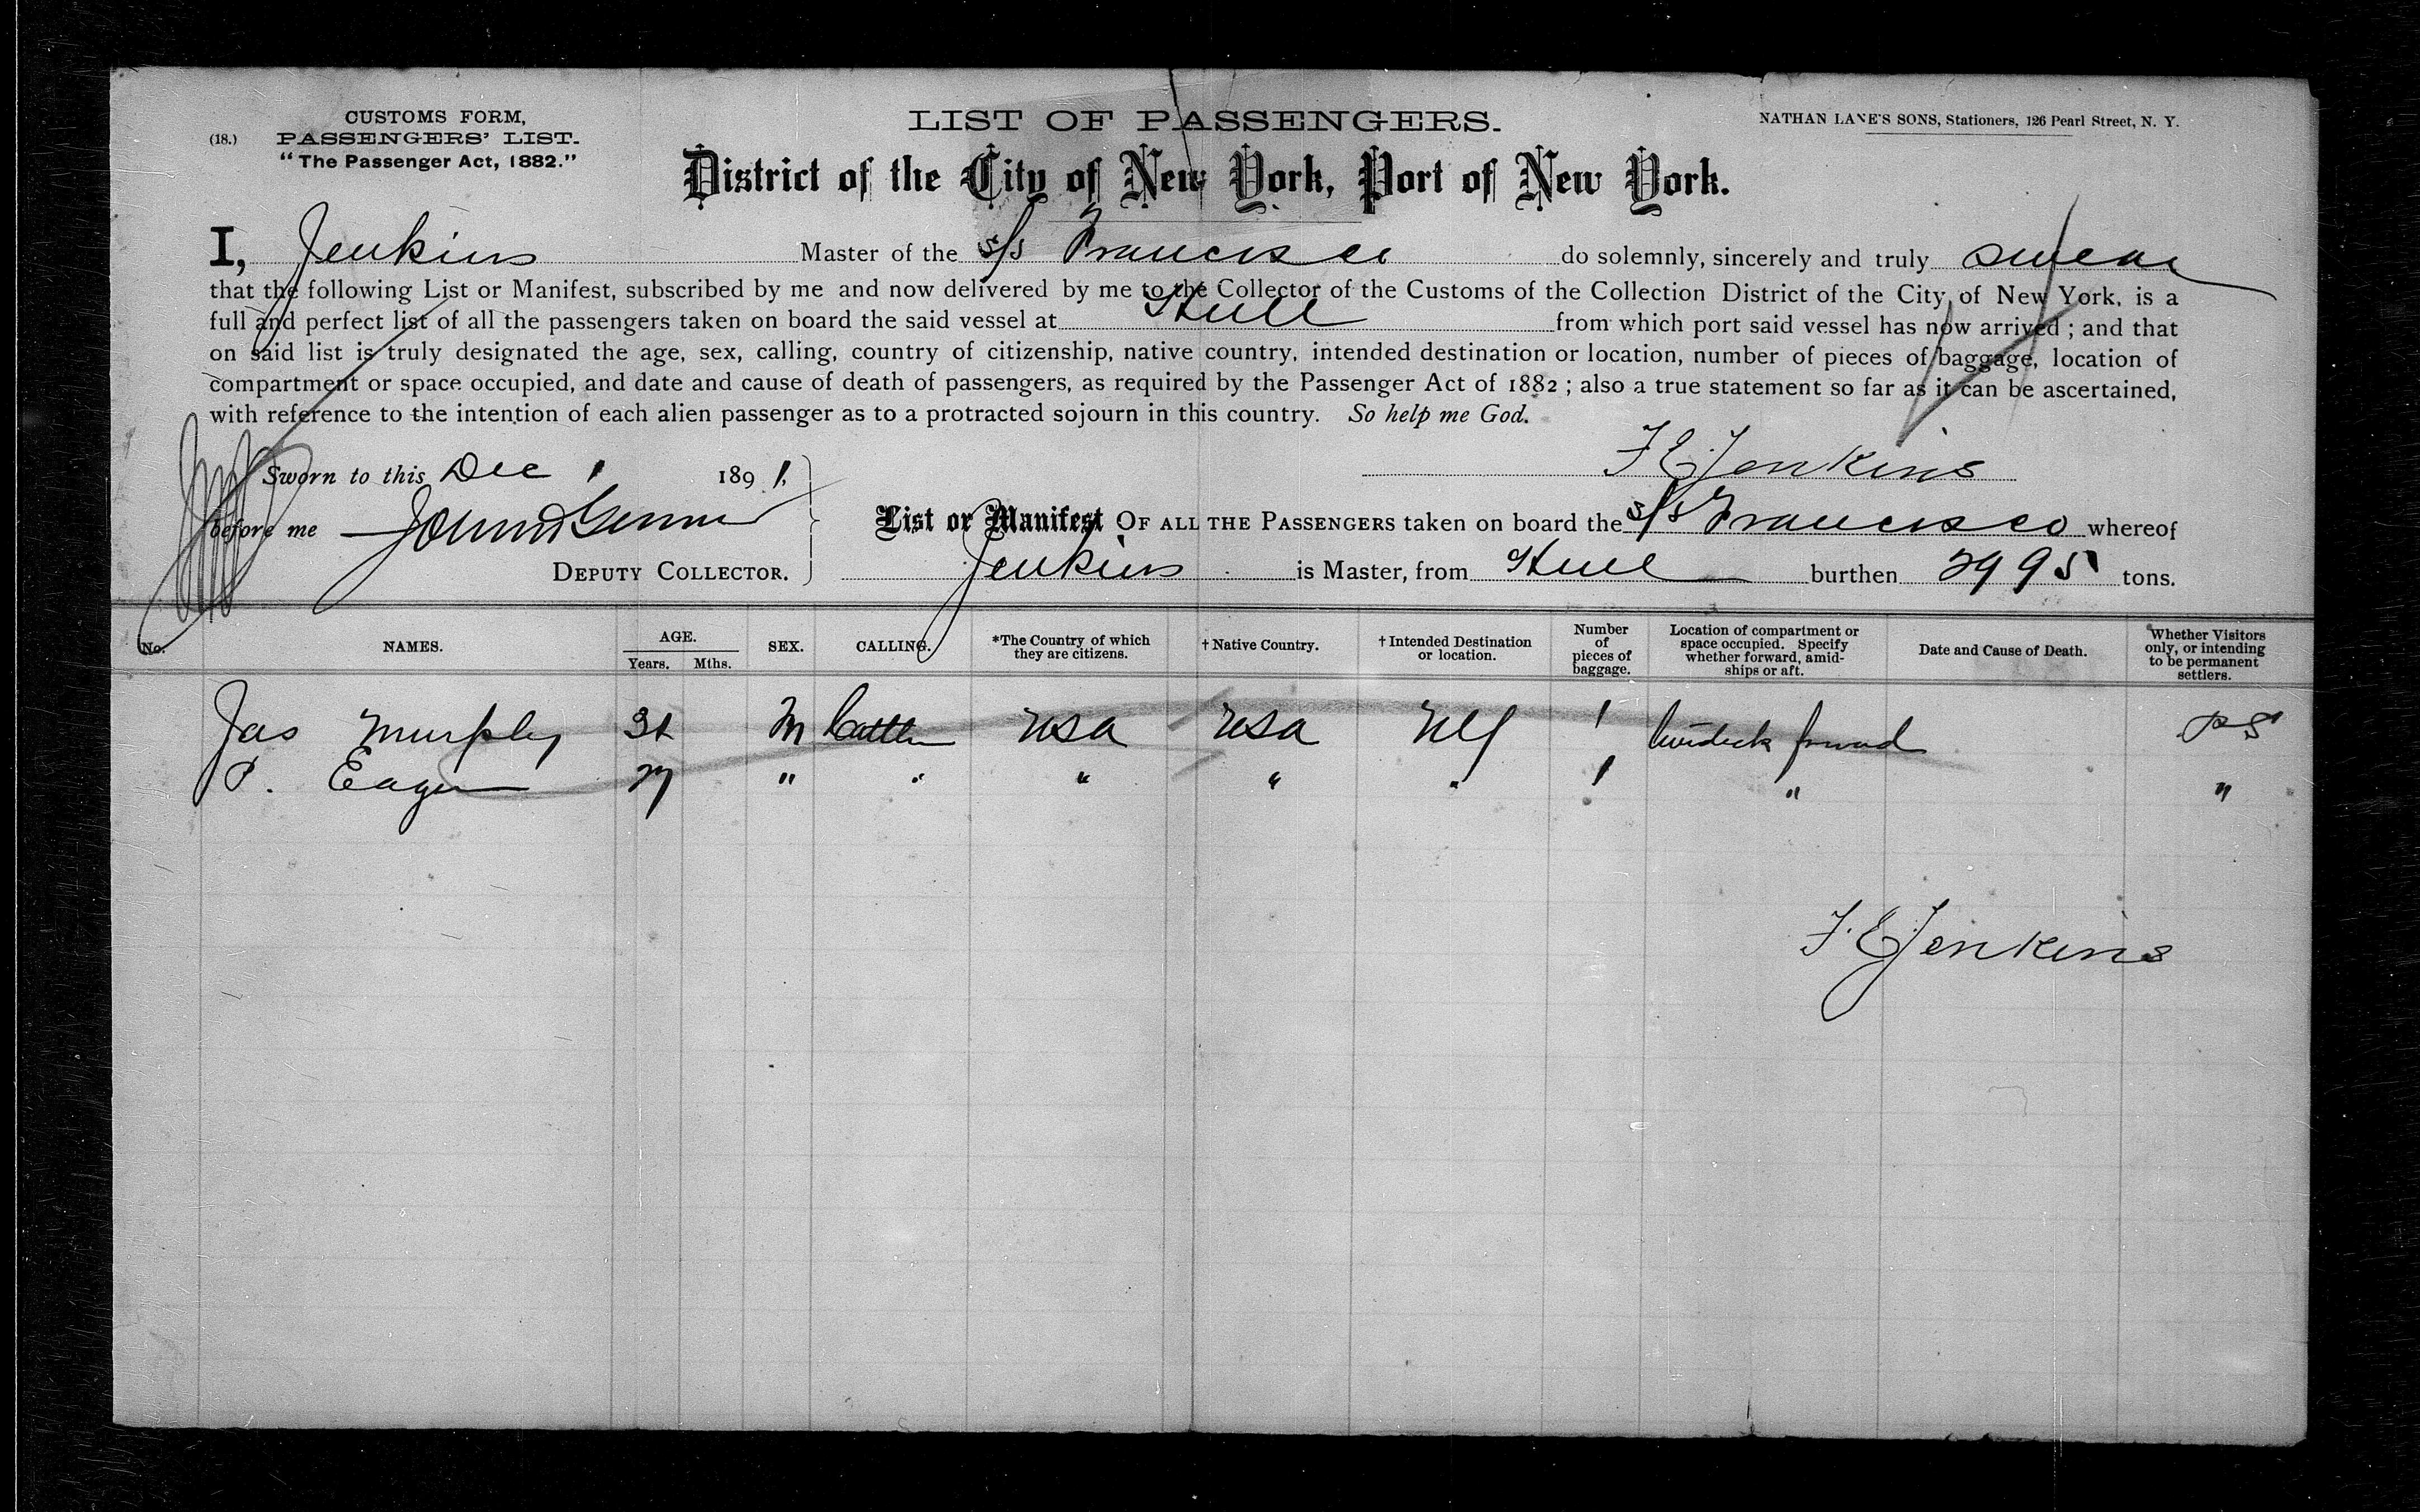 (18.) CUSTOMS FORM,
PASSENGERS' LIST.
"The Passenger Act, 1882."
LIST OF PASSENGERS.
NATHAN LANE'S SONS, Stationers, 126 Pearl Street, N. Y.
District of the City of New York, Port of New York.
I, Jenkins Master of the s/s Francisco do solemnly, sincerely and truly swear
that the following List or Manifest, subscribed by me and now delivered by me to the Collector of the Customs of the Collection District of the City of New York, is a
full and perfect list of all the passengers taken on board the said vessel at Hull from which port said vessel has now arrived; and that
on said list is truly designated the age, sex, calling, country of citizenship, native country, intended destination or location, number of pieces of baggage, location of
compartment or space occupied, and date and cause of death of passengers, as required by the Passenger Act of 1882; also a true statement so far as it can be ascertained,
with reference to the intention of each alien passenger as to a protracted sojourn in this country. So help me God.
F E Jenkins
Sworn to this Dec 1 1891,
before me
DEPUTY COLLECTOR.
List or Manifest OF ALL THE PASSENGERS taken on board the s/s Francisco whereof
Jenkins is Master, from Hull burthen 2995 tons.
No. NAMES. AGE. Years. Mths. SEX. CALLING. *The Country of which they are citizens. †Native Country. †Intended Destination or location. Number of pieces of baggage. Location of compartment or space occupied. Specify whether forward, amidships or aft. Date and Cause of Death. Whether Visitors only, or intending to be permanent settlers.
Jas Murphy M USA USA NY 1 forward PS
P. Eagen 27 " " " " " 1 " "
F. E Jenkins